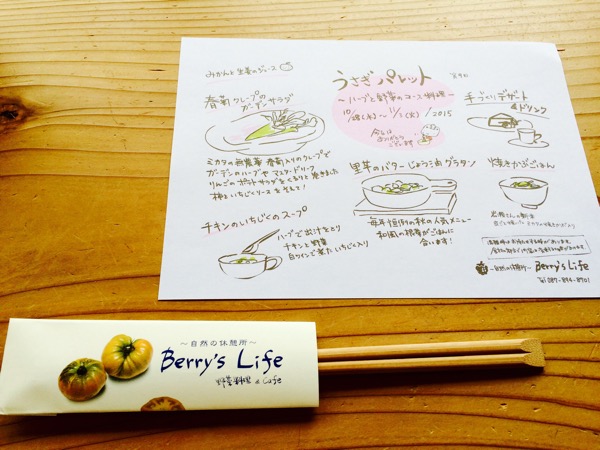 みかんと生姜のジュース
うさぎパレット
～ハーブと野菜のコース料理～
10/28(水)～11/3(火) / 2015
今日も
ありがとう
ございます
春菊クレープの
ガーデンサラダ
ミカタの無農薬春菊入りのクレープで
ガーデンのハーブやマスタードリーフ
りんごのポテトサラダをくるりと巻きました
柿といちじくソースをそえて!
手づくりデザート
&ドリンク
里芋のバターじょうゆ油グラタン
毎年恒例の秋の人気メニュー
和風の根菜がごはんに
合います!
焼きかぶごはん
チキンのいちじくのスープ
ハーブで出汁をとり
チキンと野菜
白ワインで煮たいちじく入り
～自然の休憩所～
Berry's Life
Tel 087-894-8701
～自然の休憩所～
Berry's Life
野菜料理 & Cafe